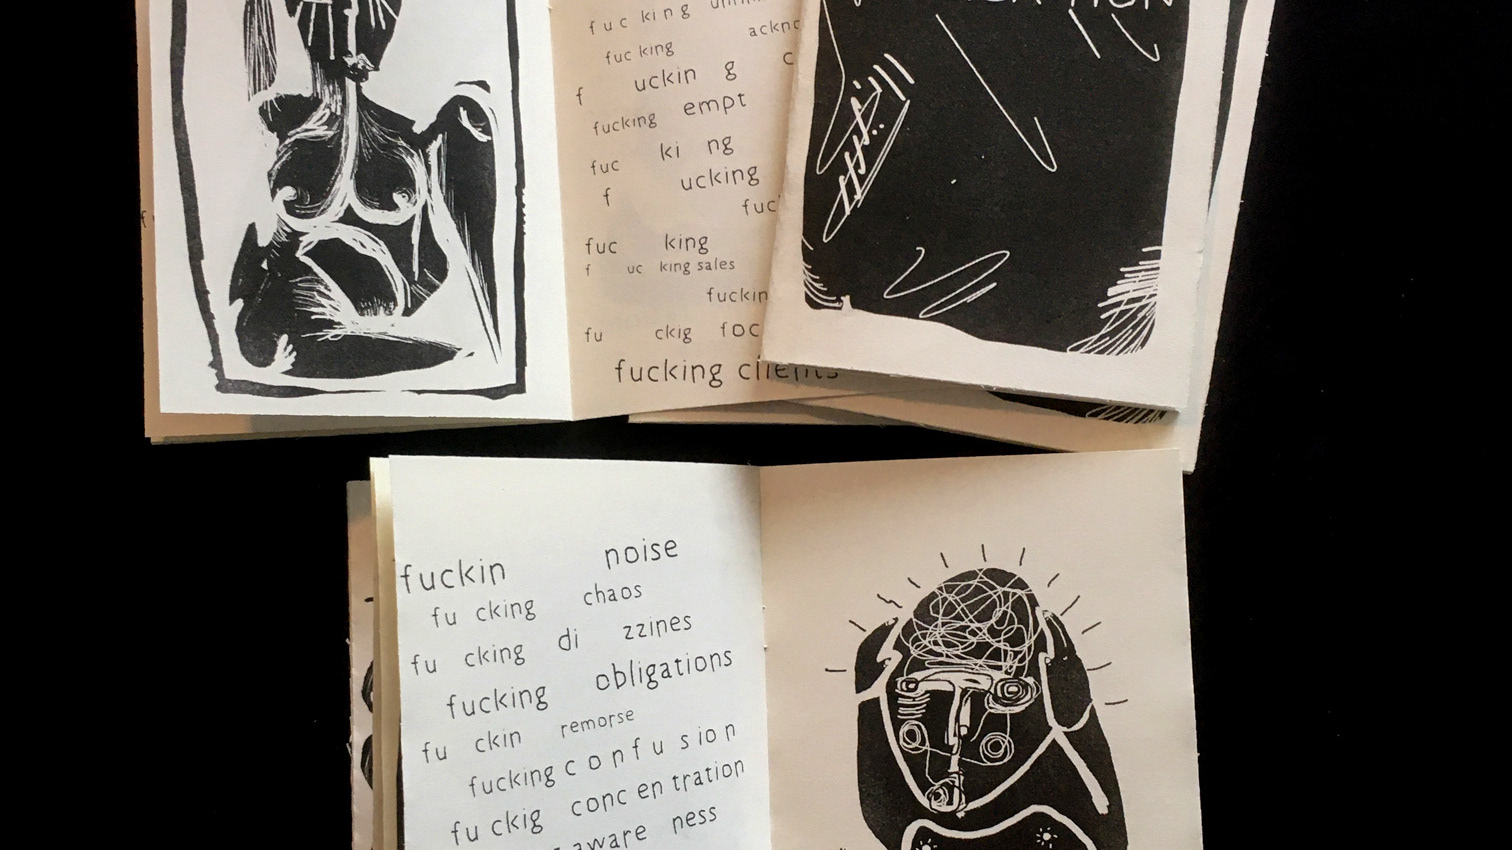 fuc king
fuc king
f uckin g
fucking empt
fuc ki ng
f ucking
fuc
fuc king
f uc king sales
fuckin
fu ckig foc
fucking clients
fuckin noise
fu cking chaos
fu cking di zzines
fucking obligations
fu ckin remorse
fucking c o n f u s i o n
fu ckig conc en tration
aware ness